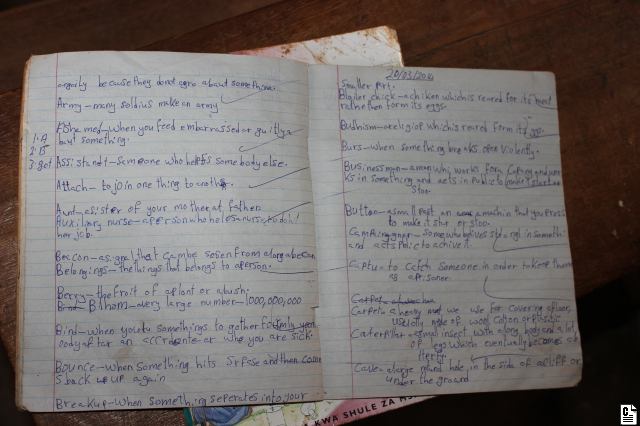 angrily because they don't agre about something.
Army – many soldius make an army
Ashe med – when you feel embarrassed or guitly a
bout something.
1. A
2. B
3. get
Assistandt – Someone who helps somebody else.
Attach – to join one thing to another.
Aunt – a sister of your mother at father
Auxiliary nurse – a person who heles nurse to do hit
her job.
Beacon – as gnal that can be seen from a long abecan
Belongings – the things that belongs to a person.
Berry – the fruit of a plant or a bush.
Billion – very large number – 1000,000,000
Bind – when you tie somethings to gather
body aftar an accident or who you are sick.
Bounce – when something hits and then come
s back up again
Breakup – when something seperates into your
20/03/2020
smaller part.
Bloiler chick – a chiken which is reared for its meat
rathe then form its eggs.
Bushism – a religiop which is reared form its ggs.
Burs – when something breaks open violently.
Businessman – a man who works for a company and wor
ks in something and acts in public to make start an
Stop.
Button – a small part an a machin that you press
to make it star or stop.
Campaingner – Some who belives strongl in somethi
and acts polic to achive it.
Captu – to Catch someone in order to keep them
as a prisoner.
Carpet – a heavy mat we use for covering a floor,
usually made of wool cotton or plastic
Caterpiller – a small insect with a long body and a lot
of legs which eventually becomes a
Cave – a large ground hole, in the side of a cliff or
under the ground
KWA SHULE ZA MS